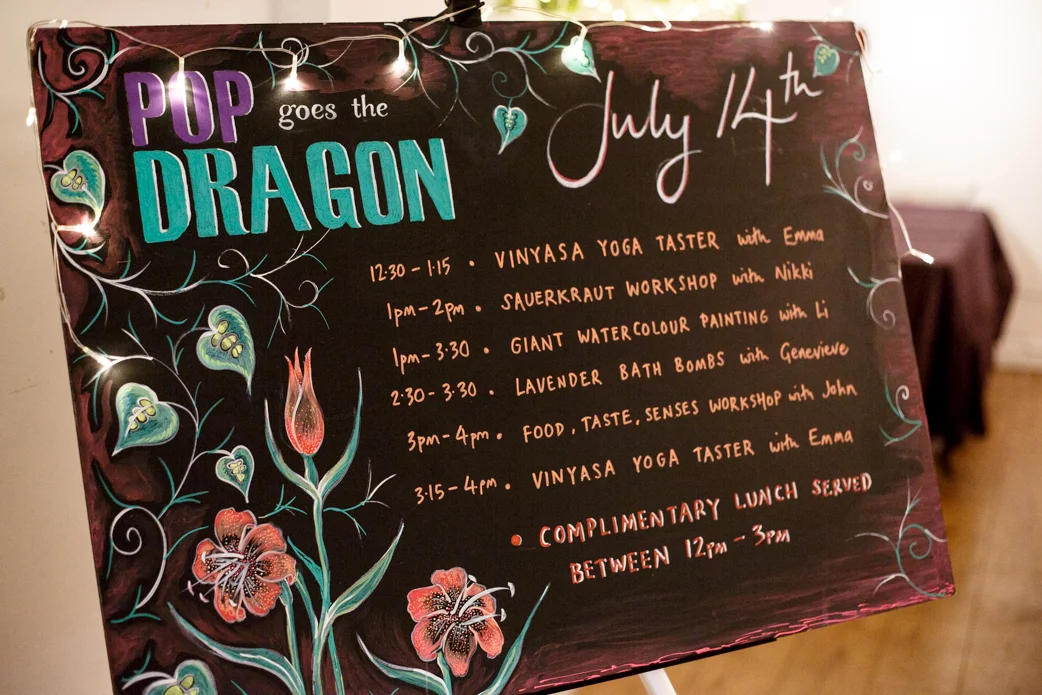 POP goes the
DRAGON
July 14th
12·30 - 1·15 • VINYASA YOGA TASTER with Emma
1pm - 2pm • SAUERKRAUT WORKSHOP with Nikki
1pm - 3·30 • GIANT WATERCOLOUR PAINTING with Li
2·30 - 3·30 • LAVENDER BATH BOMBS with Genevieve
3pm - 4pm • FOOD, TASTE, SENSES WORKSHOP with John
3·15 - 4pm • VINYASA YOGA TASTER with Emma
• COMPLIMENTARY LUNCH SERVED
BETWEEN 12pm - 3pm